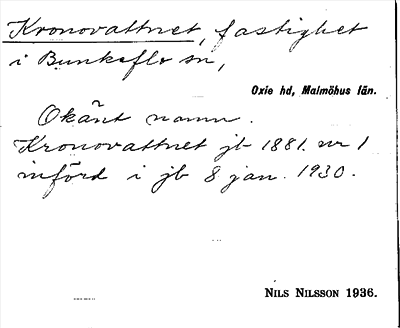 Kronovattnet, fastighet
i Bunkeflo sn,
Oxie hd, Malmöhus län.
Okänt namn.
Kronovattnet jb 1881. nr 1
införd i jb 8 jan. 1930.
NILS NILSSON 1936.